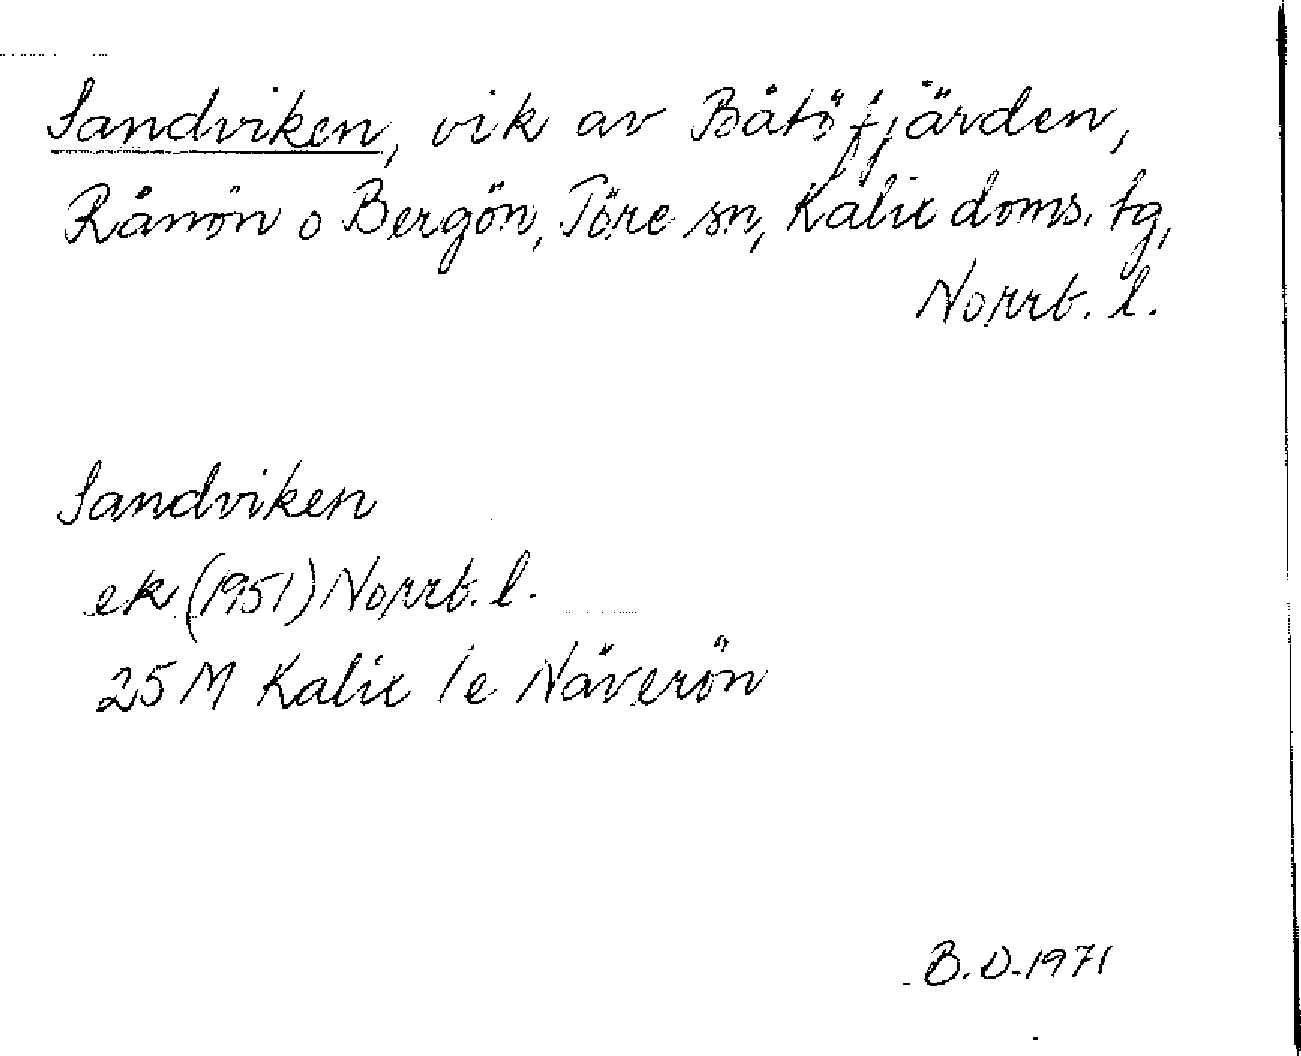 Sandviken, vik av Båtöfjärden,
Rånön o Bergön, Töre sn, Kalix doms. tg,
Norrb. l.
Sandviken
ek (1951) Norrb. l.
25 M Kalix /e Näverön
B.D. 1971